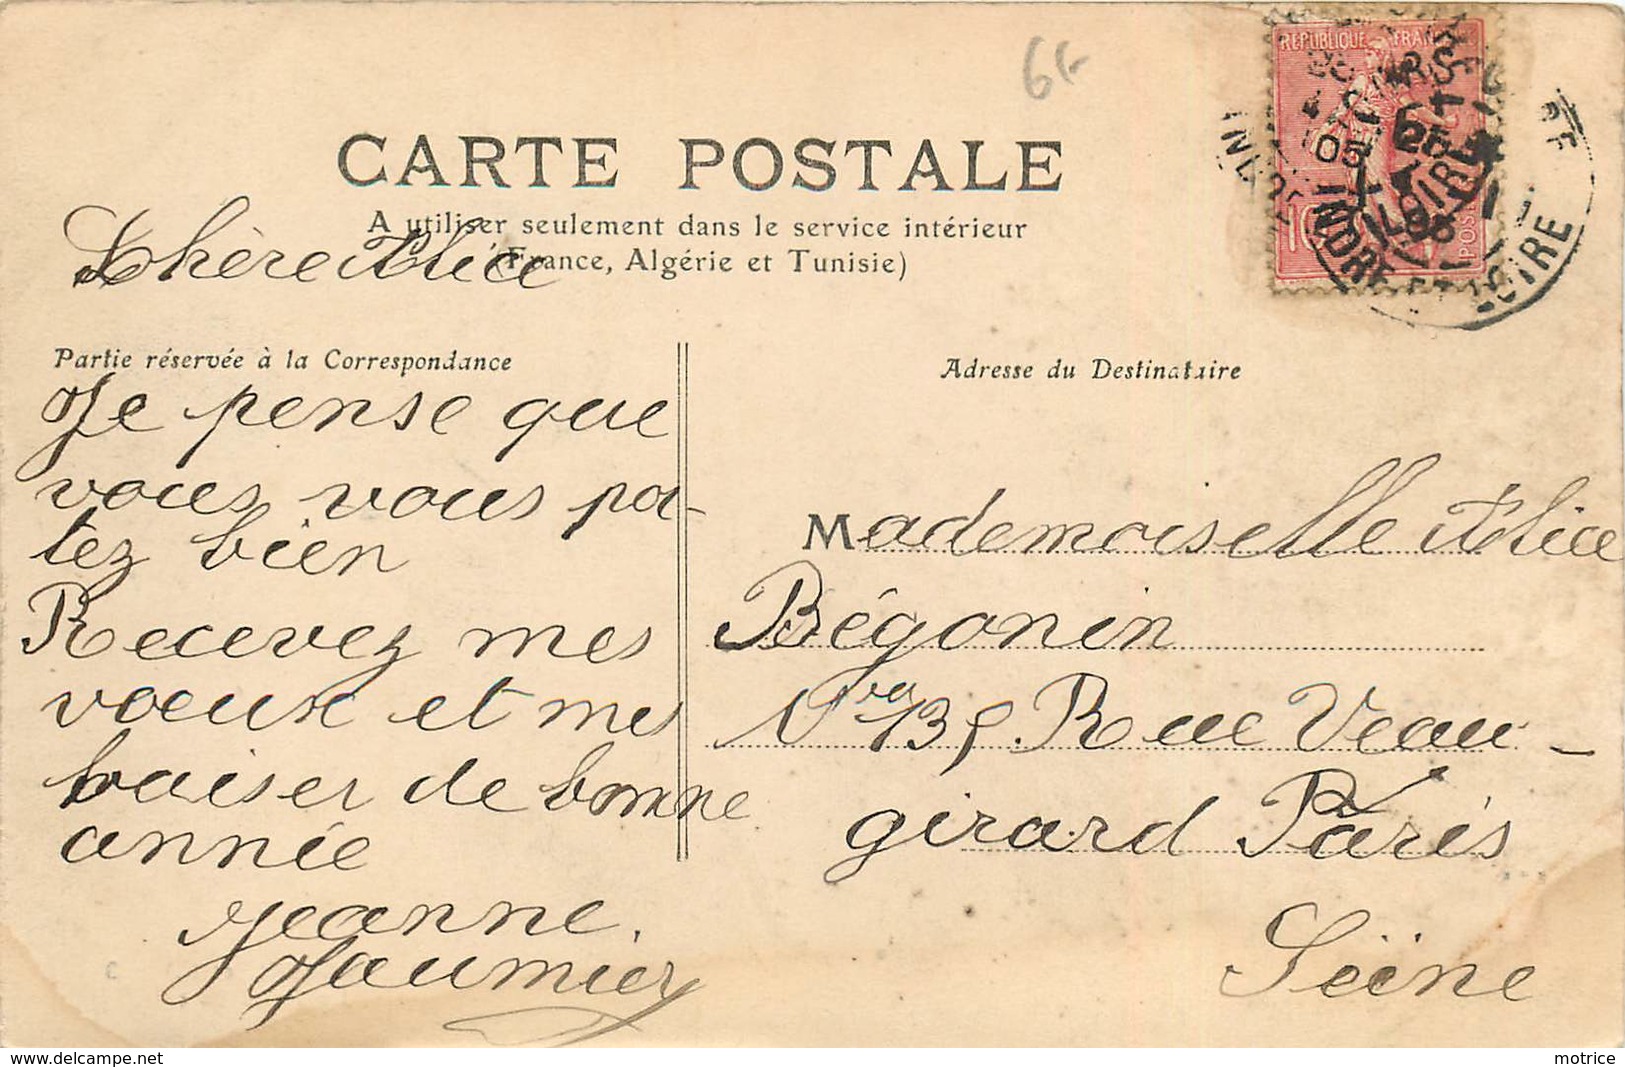 6F
REPUBLIQUE FRAN
INDRE ET LOIRE
CARTE POSTALE
A utiliser seulement dans le service intérieur
(France, Algérie et Tunisie)
Chère Alice
Partie réservée à la Correspondance
Je pense que
vous vous por-
tez bien
Recevez mes
voeux et mes
baiser de bonne
année
Jeanne
Adresse du Destinataire
Mademoiselle Alice
Bégonin
135. Rue Veau-
girard Paris
Seine
delcampe.net
motrice